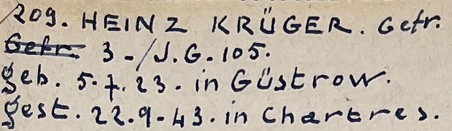 209. HEINZ KRÜGER. Gefr.
Gefr. 3-/J.G.105.
geb. 5.7.23. in Güstrow.
gest. 22.9-43. in Chartres.